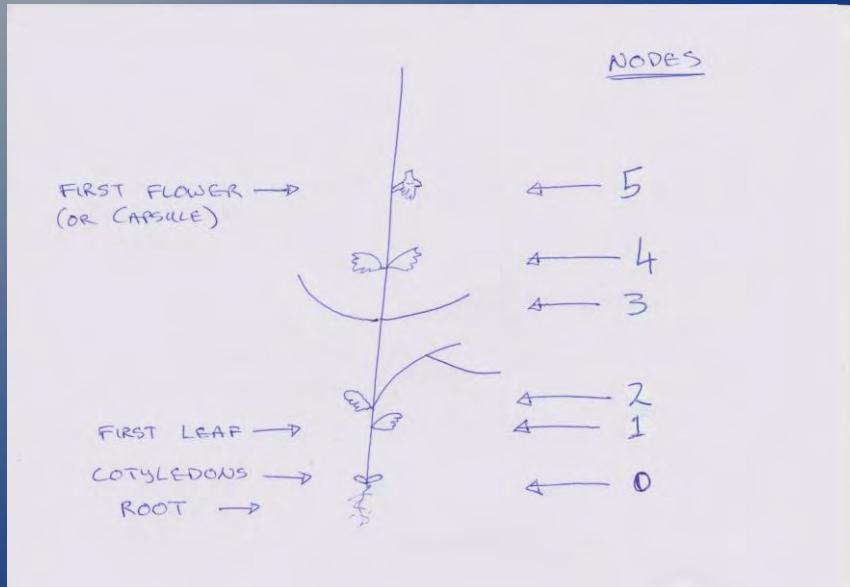 NODES
FIRST FLOWER
(OR CAPSULE)
5
4
3
2
FIRST LEAF
1
COTYLEDONS
0
ROOT